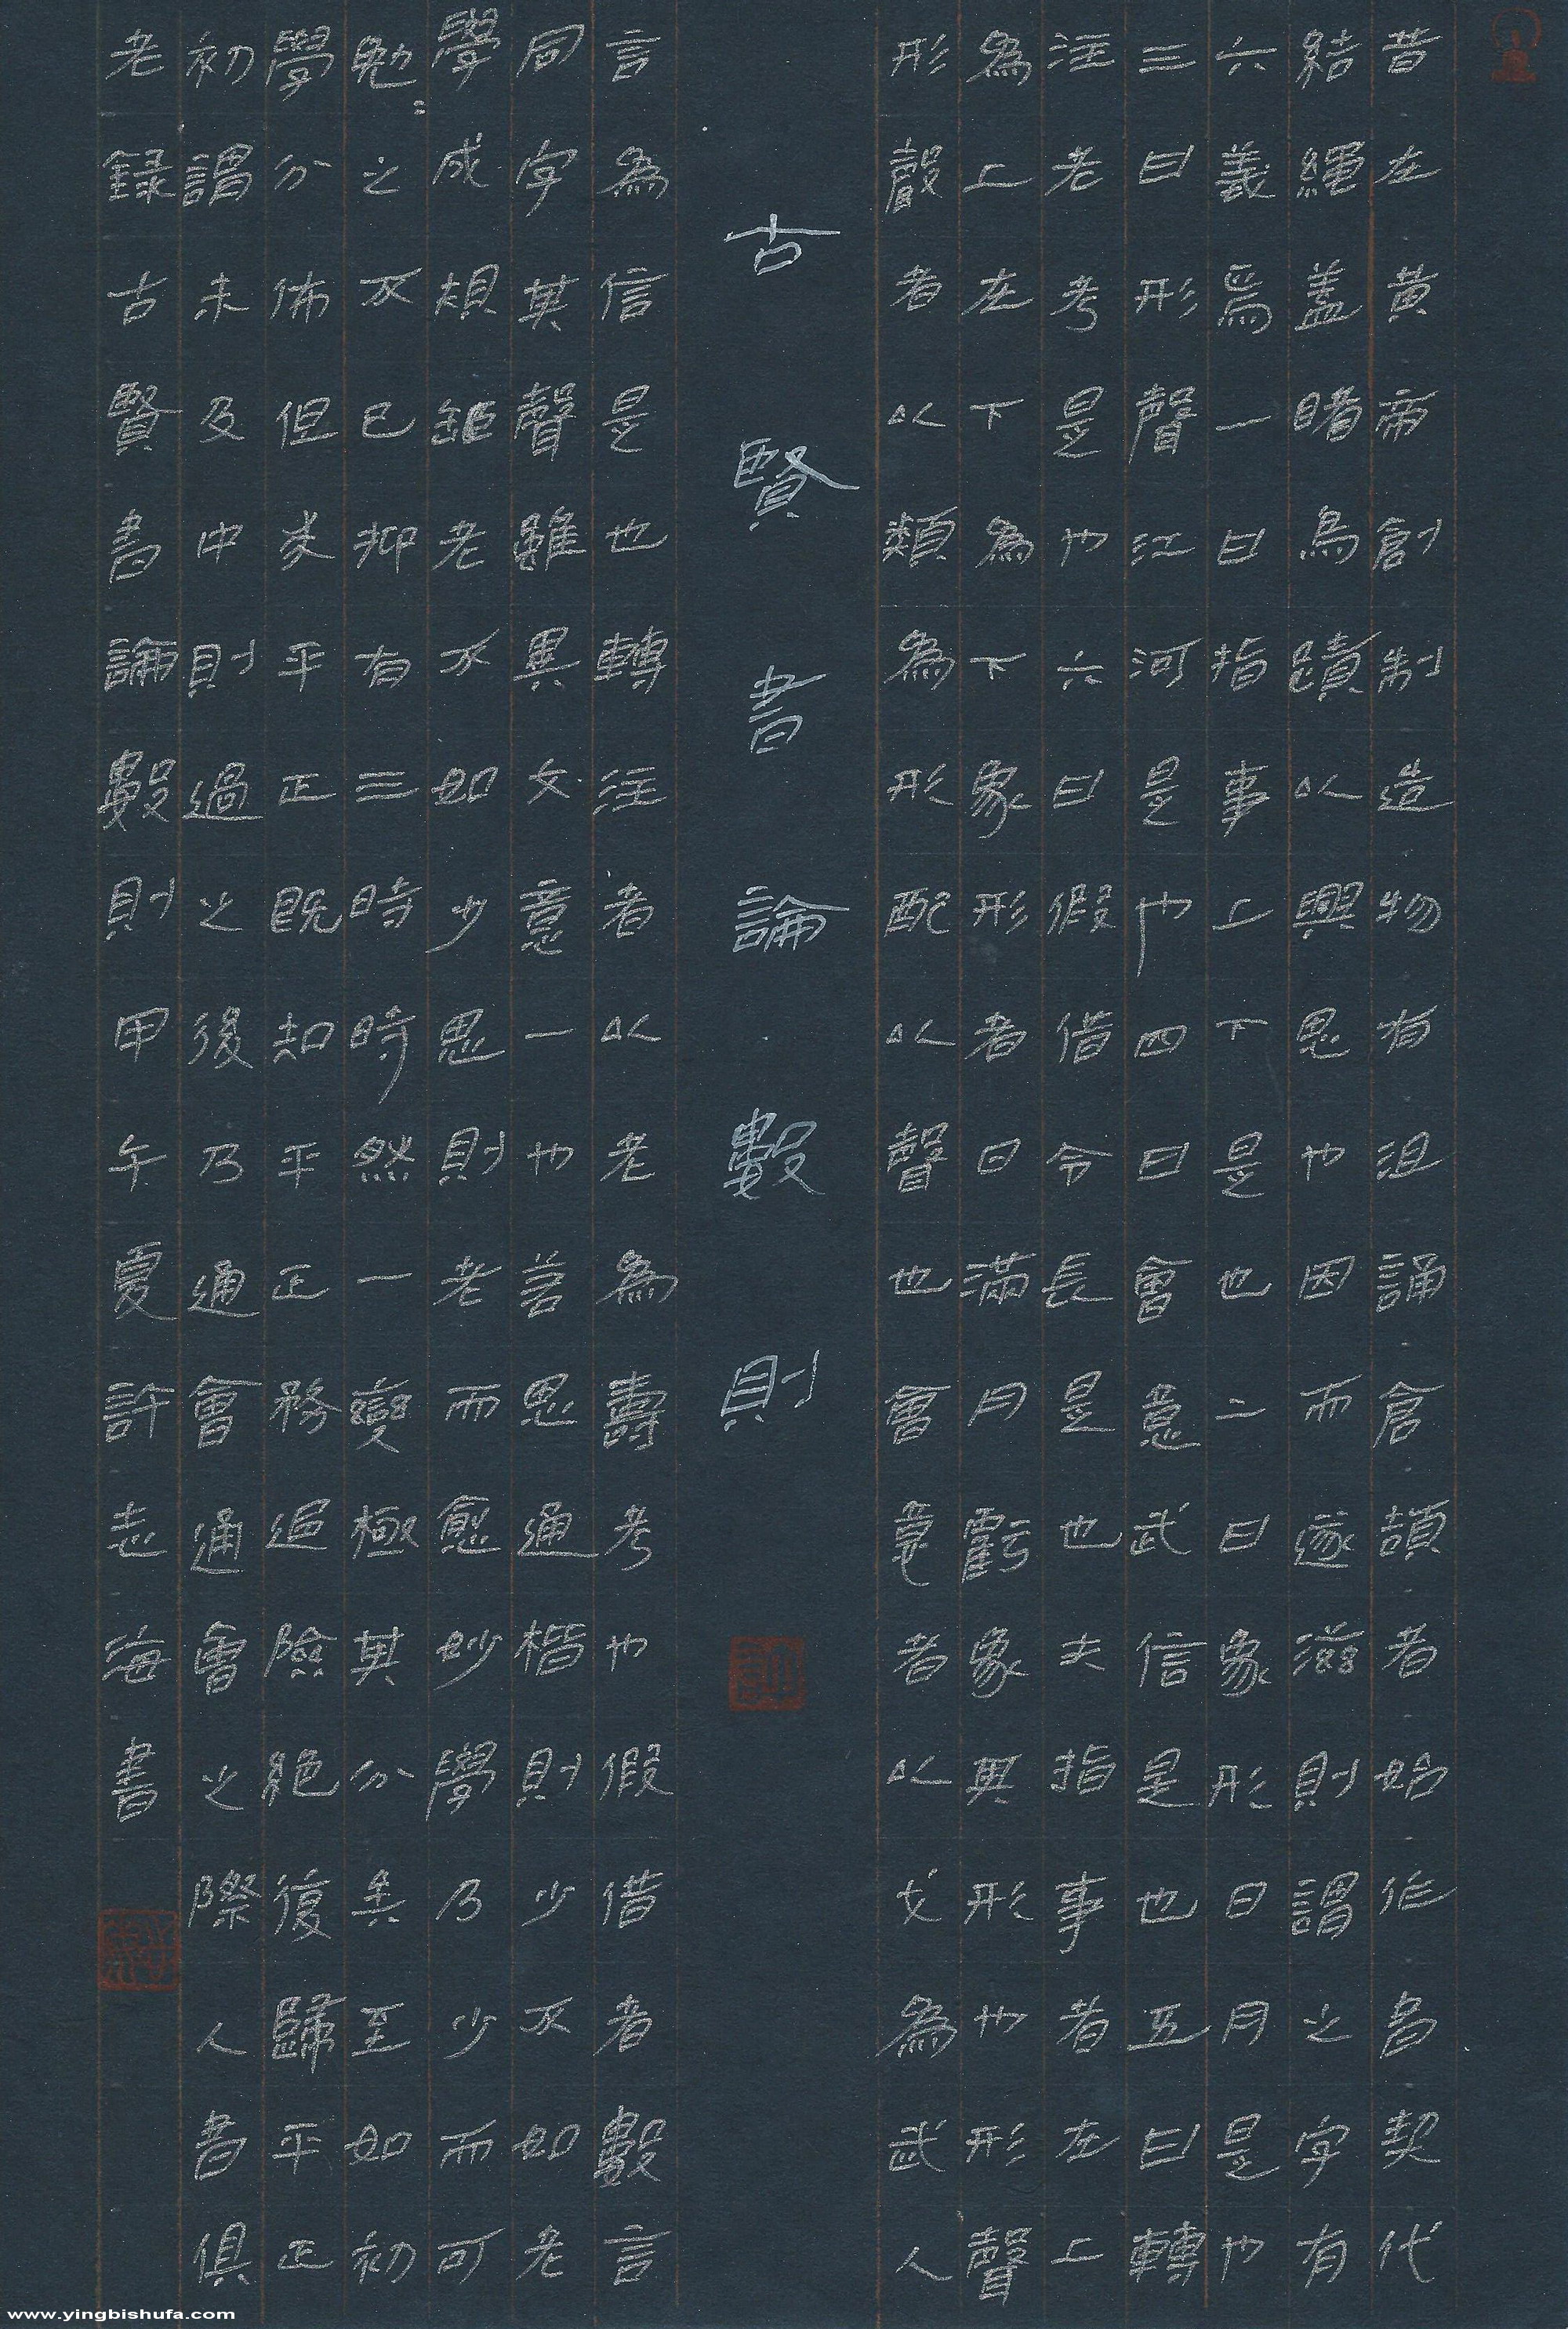 昔在黄帝創制造物有沮誦倉頡者始作書契代
結繩蓋睹鳥蹟以興思也因而遂滋則謂之字有
六義焉一曰指事上下是也二曰象形日月是也
三曰形聲江河是也四曰會意武信是也五曰轉
注老考是也六曰假借令長是也夫指事者在上
為上在下為下象形者日滿月虧象其形也形聲
形聲者以類為形配以聲也會意者以戈為武人
古賢書論數則
言為信是也轉注者以老為壽考也假借者數言
同字其聲雖異文意一也若思通楷則少不如老
學成規矩老不如少思則老而愈妙學乃少而可
勉:之不已抑有三時時然一變極其分矣至如初
學分佈但求平正既知平正務追險絕復歸平正
初謂未及中則過之後乃通會通會之際人書俱
老錄古賢書論數則甲午夏許志海書
www.yingbishufa.com